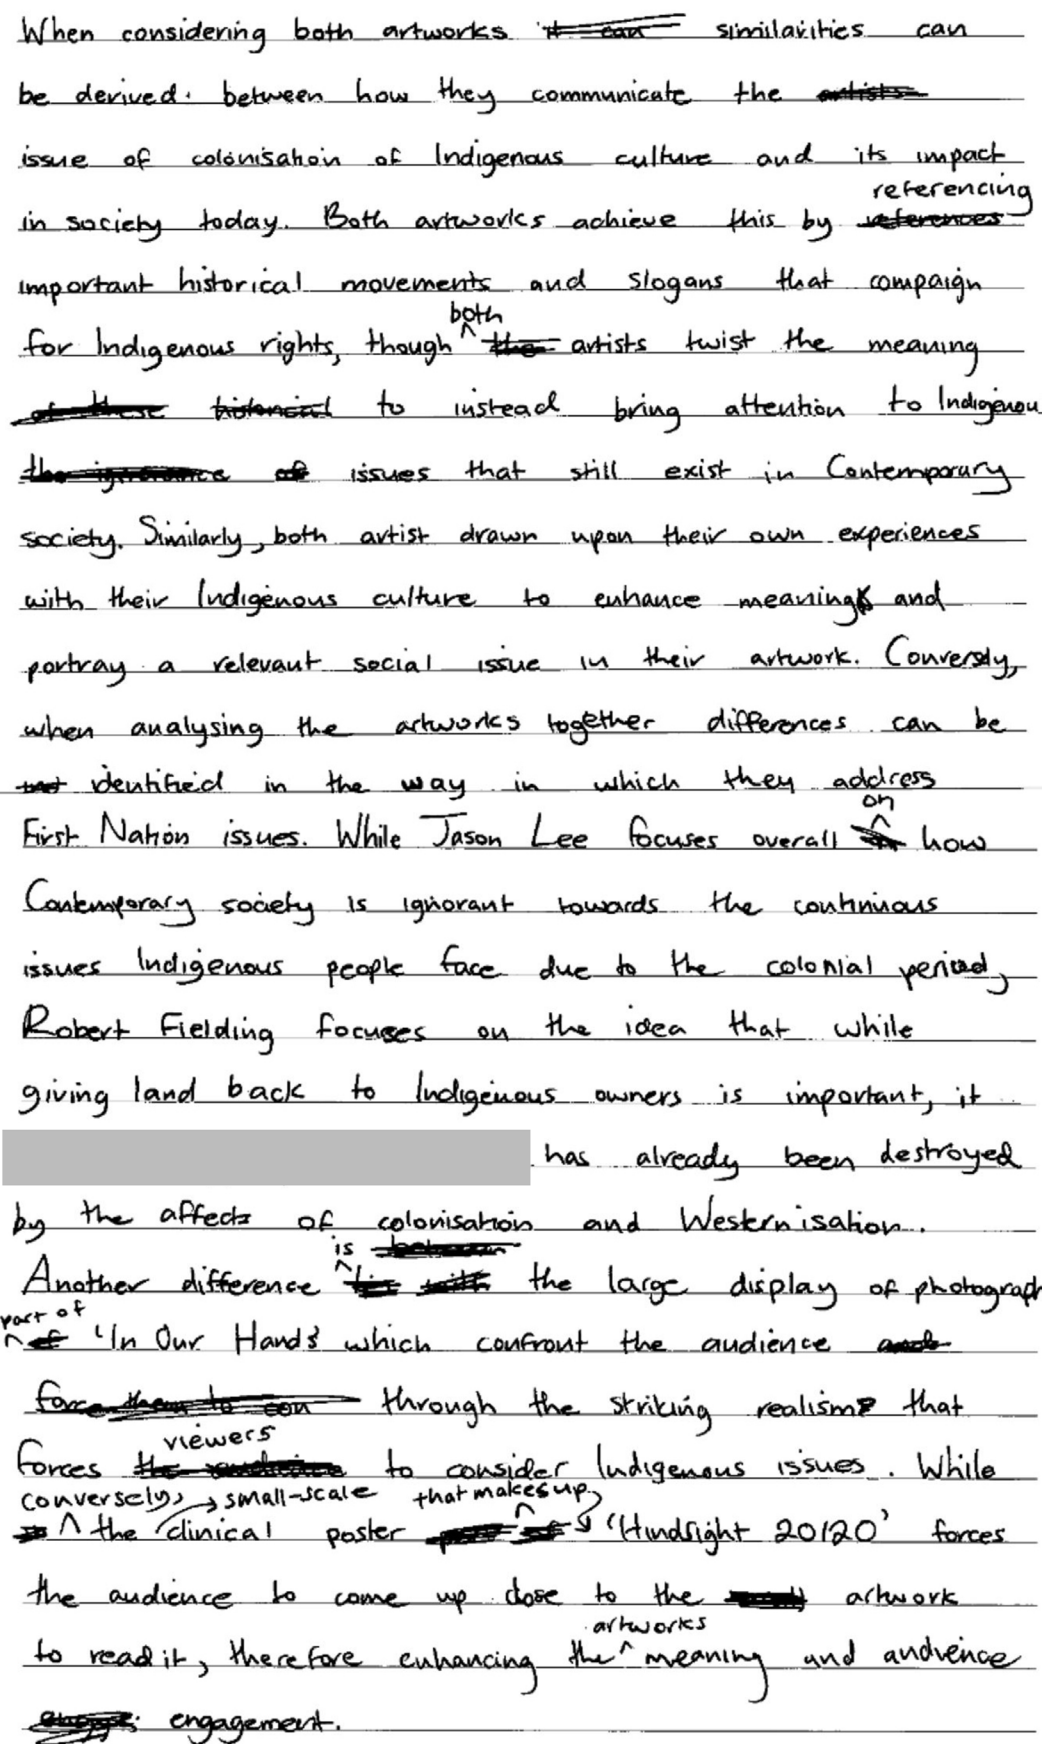 When considering both artworks it can similarities can
be derived. between how they communicate the artists
issue of colonisation of Indigenous culture and its impact
referencing
in society today. Both artworks achieve this by references
important historical movements and slogans that campaign
both
for Indigenous rights, though ^ the artists twist the meaning
of these historical to instead bring attention to Indigenou
the ignorance of issues that still exist in Contemporary
society. Similarly, both artist drawn upon their own experiences
with their Indigenous culture to enhance meaning and
portray a relevant social issue in their artwork. Conversly,
when analysing the artworks together differences can be
identified in the way in which they address
on
First Nation issues. While Jason Lee focuses overall ^ how
Contemporary society is ignorant towards the continuous
issues Indigenous people face due to the colonial period,
Robert Fielding focuses on the idea that while
giving land back to Indigenous owners is important, it
has already been destroyed
by the affects of colonisation and Westernisation.
is between
Another difference ^ lies with the large display of photograph
part of
^ of 'In Our Hands' which confront the audience and
force them to con through the striking realism that
viewers
forces the audience to consider Indigenous issues. While
conversely, → small-scale that makes up
^ the clinical poster ^ of 'Hindsight 20/20' forces
the audience to come up close to the artwork
artworks
to read it, therefore enhancing the ^ meaning and audience
engagement.